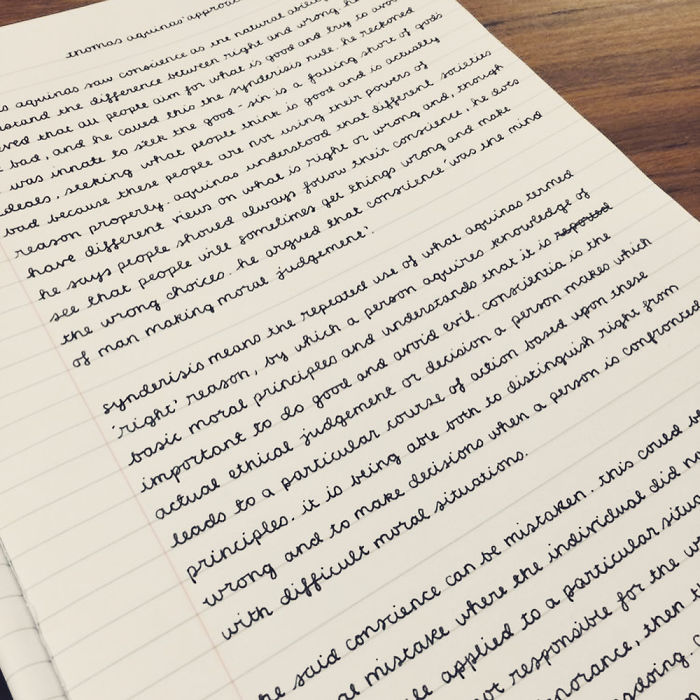 thomas aquinas' approa
aquinas saw conscience as the natural ability
stand the difference between right and wrong. he
ved that all people aim for what is good and try to avoid
bad, and he called this the synderisis rule. he reckoned
was innate to seek the good - sin is a falling short of gods
ideals, seeking what people think is good and is actually
bad because these people are not using their powers of
reason properly. aquinas understood that different societies
have different views on what is right or wrong and, though
he says people should always follow their conscience, he does
see that people will sometimes get things wrong and make
the wrong choices. he argued that conscience 'was the mind
of man making moral judgement'.
synderisis means the repeated use of what aquinas termed
'right' reason, by which a person aquires knowledge of
basic moral principles and understands that it is
important to do good and avoid evil. conscientia is the
actual ethical judgement or decision a person makes which
leads to a particular course of action based upon these
principles. it is being able both to distinguish right from
wrong and to make decisions when a person is confronted
with difficult moral situations.
he said conscience can be mistaken. this could b
al mistake where the individual did n
le applied to a particular situa
not responsible for the w
norance, then t
doing.